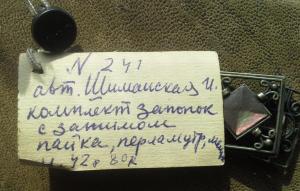 N 241
авт. Шиманская И.
комплект запонок
с зажимом
пайка, перламутр,
ц. 42р 80к